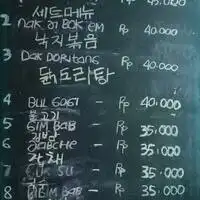 세트메뉴
2 NAK JI BOK EM Rp 40.000
낙지볶음
3 DAK DORITANG Rp 40.000
닭도리탕
4 BULGOGI - Rp 40.000
불고기
5 GIM BAB - Rp 35.000
김밥
6 JABCHE - Rp 35.000
잡채
7 - Rp 35.000
8 BIBIM BAB - Rp 35.000